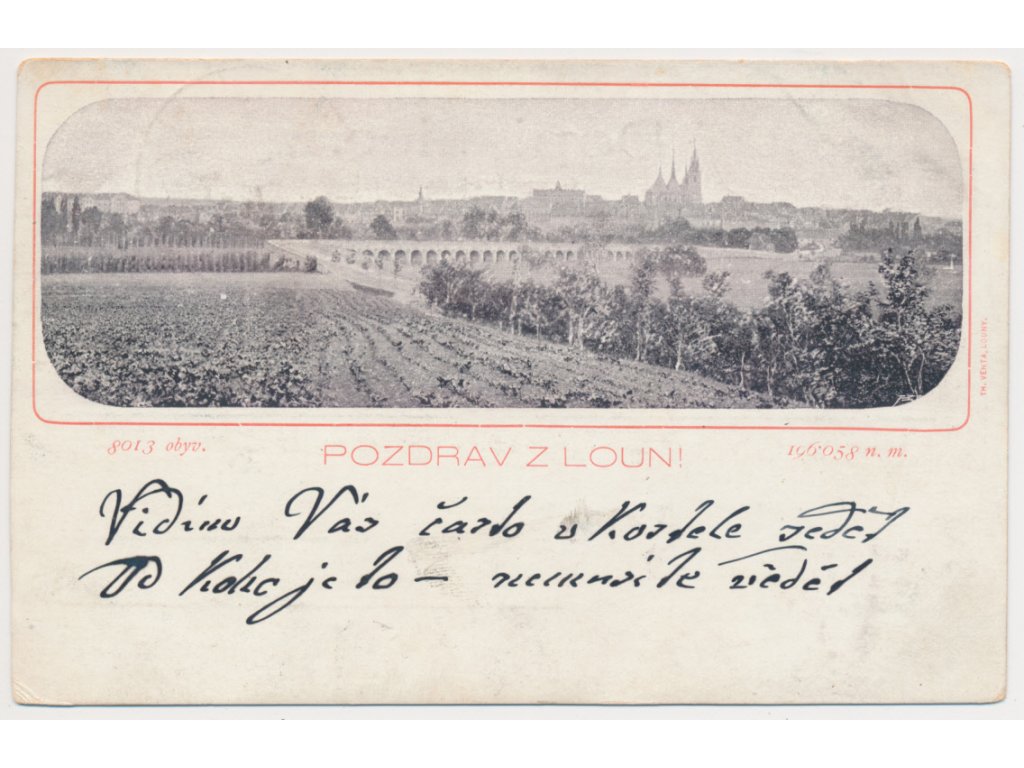 TH. VENTA, LOUNY.
8013 obyv.
POZDRAV Z LOUN!
196·058 n. m.
Vidímo Vás často v Kostele sedět
Od Koho je to – nemusíte vědět